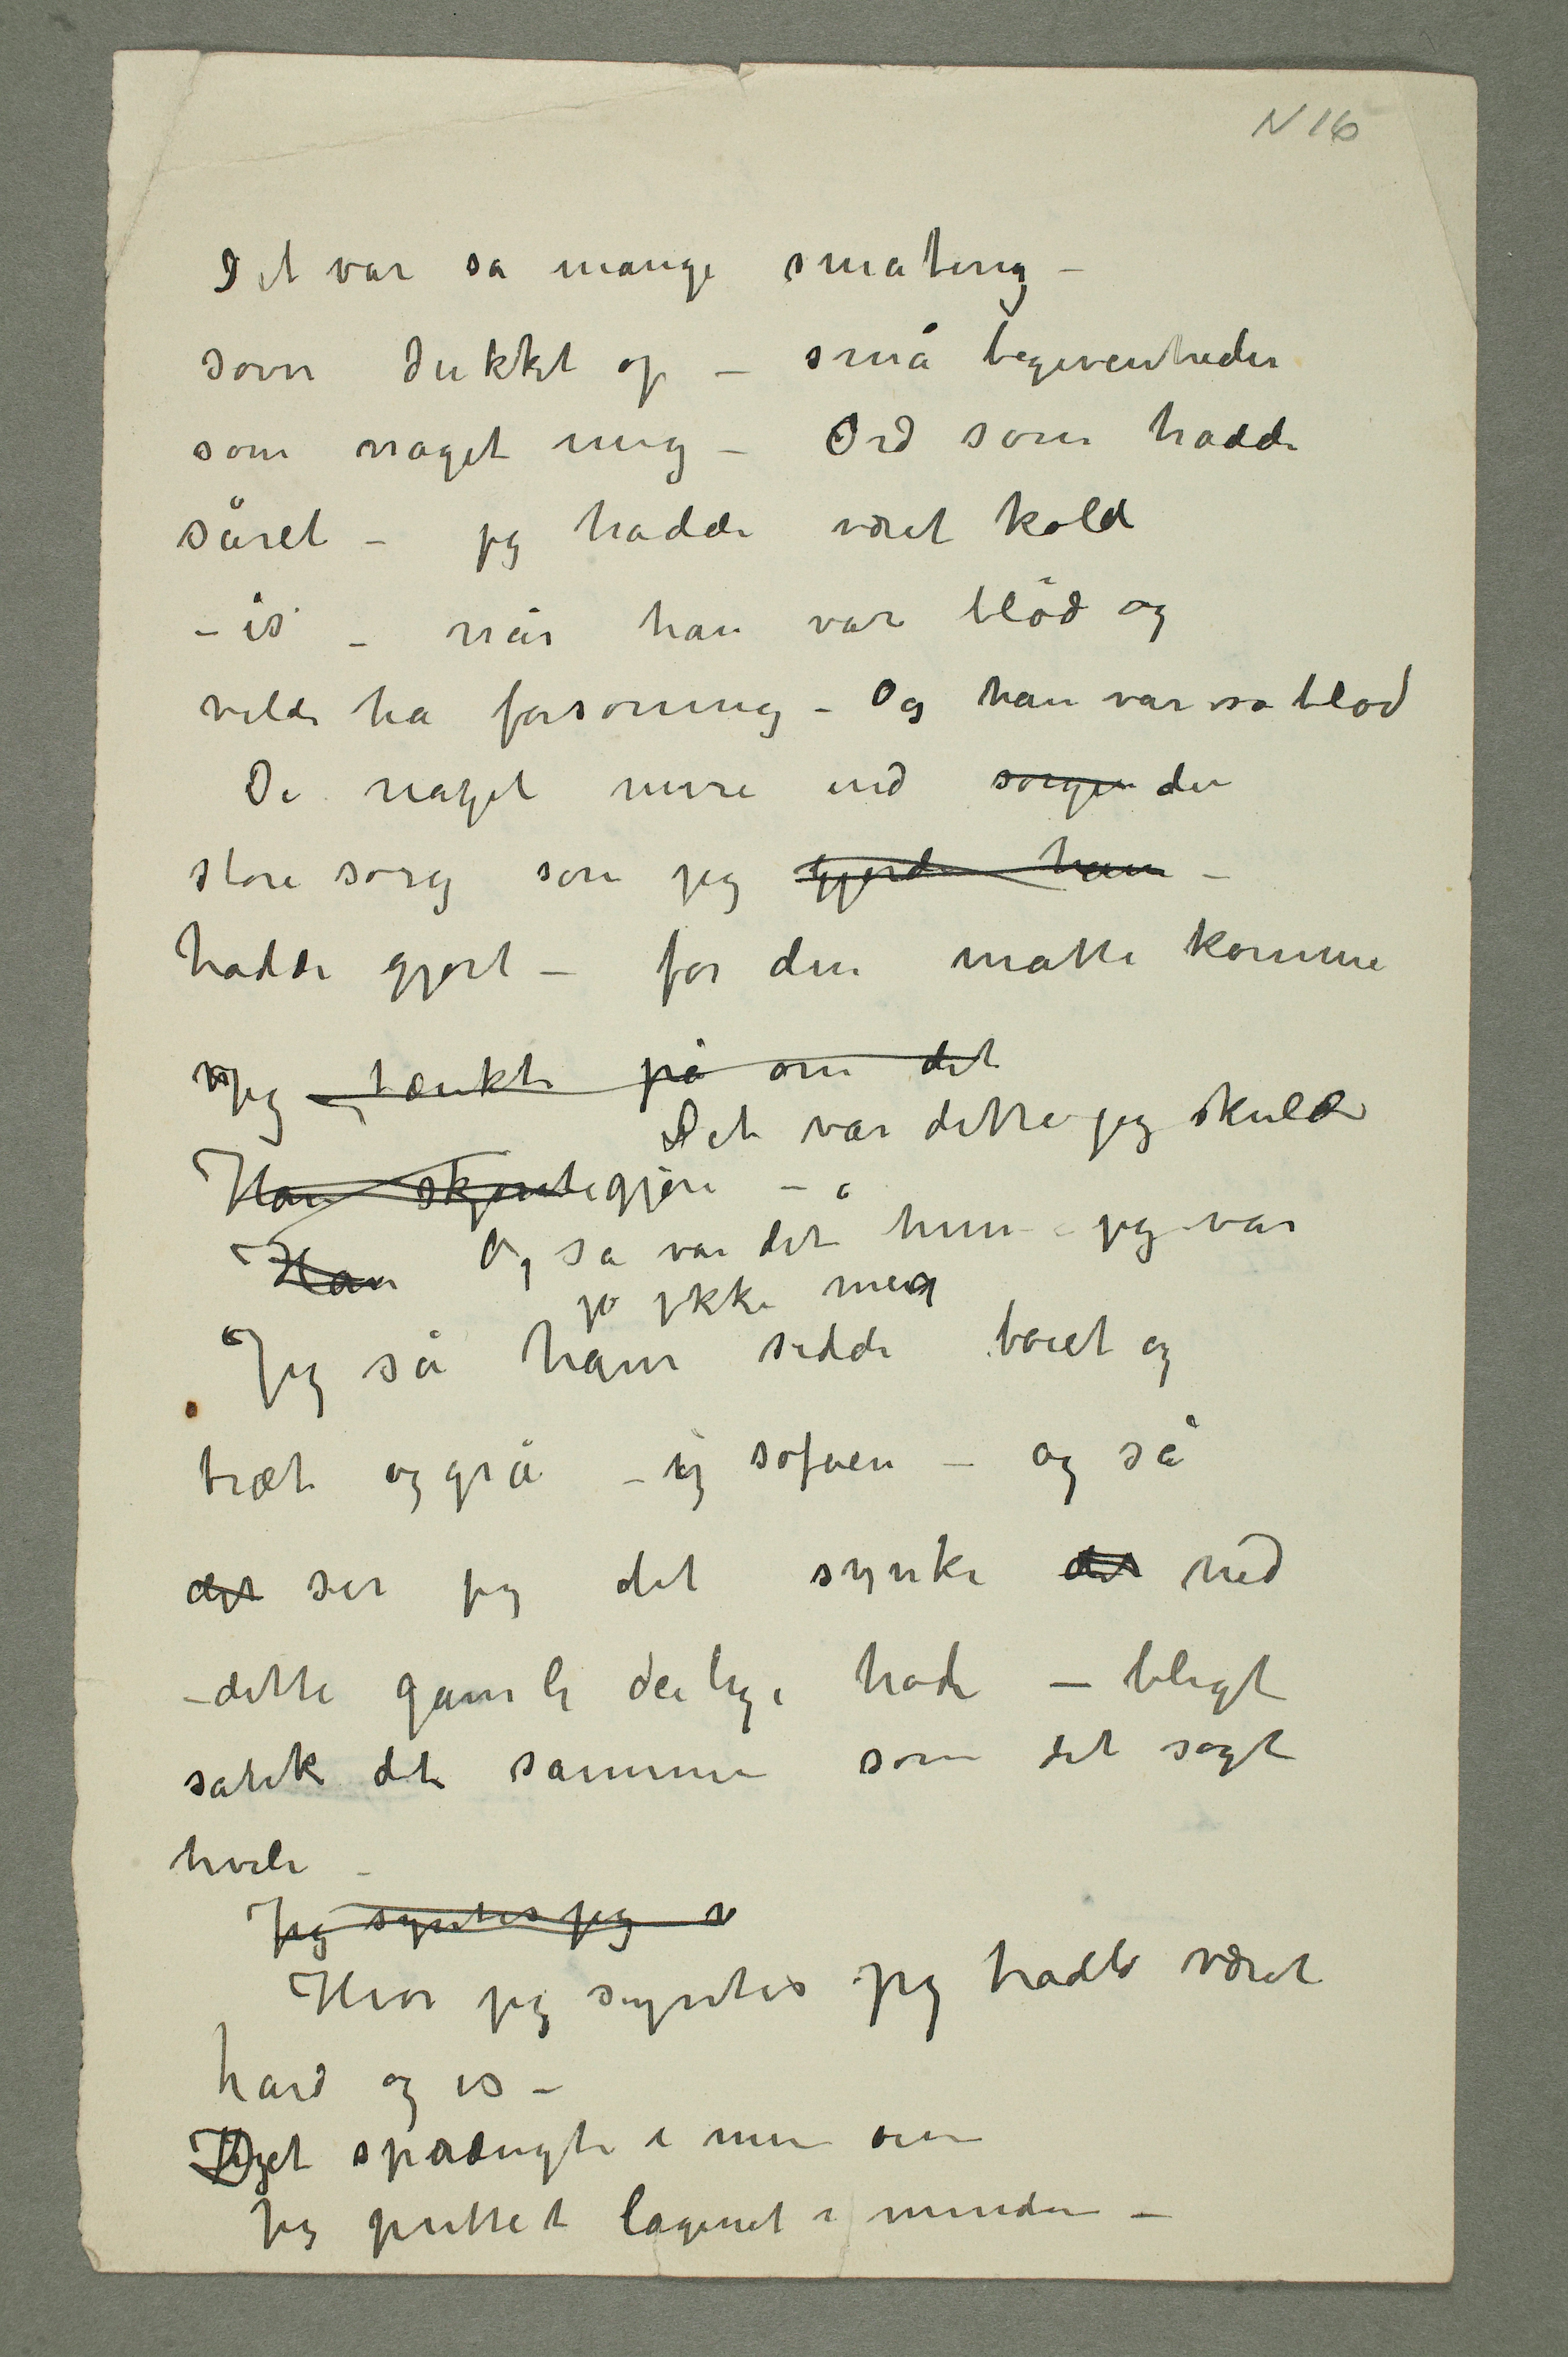 N 16
Det var så mange småting –
som dukket op – små begivenheder
som naget mig – Ord som hadde
såret – jeg hadde været kold
– is – når han var blød og
vilde ha forsoning – Og han var så blød
De naget mere end sorgen den
store sorg som jeg gjorde ham –
hadde gjort – for den måtte komme
Jeg tænkte på om det
Det var dette jeg skulde
Han skjønte gjøre – å
Han Og så var det hun – jeg var
jo ikke mer
Jeg så ham sidde bøiet og
træt og grå – i sofaen – og så
det ser jeg det synke det ned
– dette gamle deilige hode – blegt
satik det sammen som det søgt
hvile –
Jeg syntes jeg v
Hvor jeg syntes jeg hadde været
hård og is –
Det sprængte i min
Jeg puttet lagenet i munden –